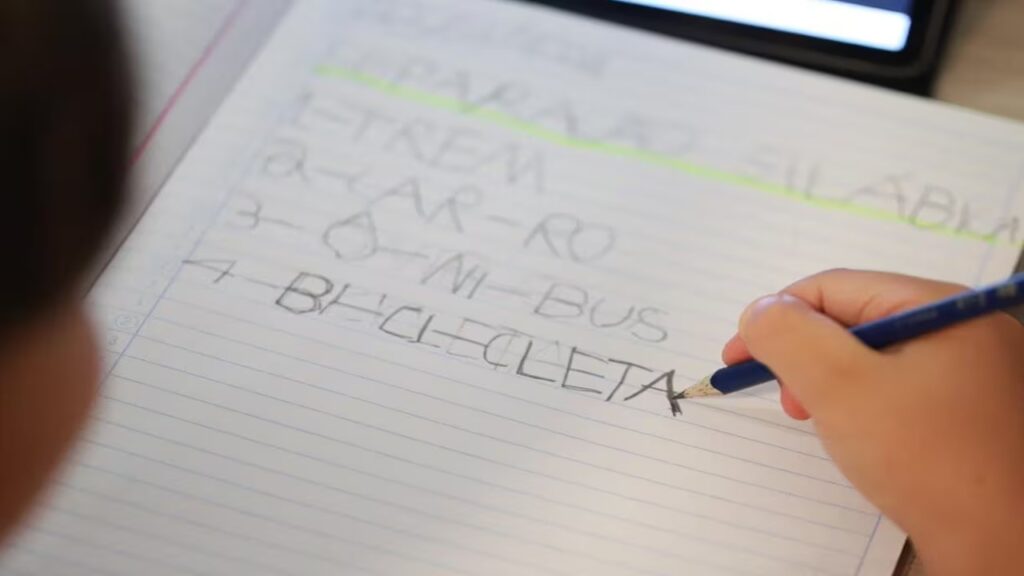 SEPARAÇÃO SILÁBICA
1-TREM
2-CAR-RO
3-Ô-NI-BUS
4-BI-CI-CLETA